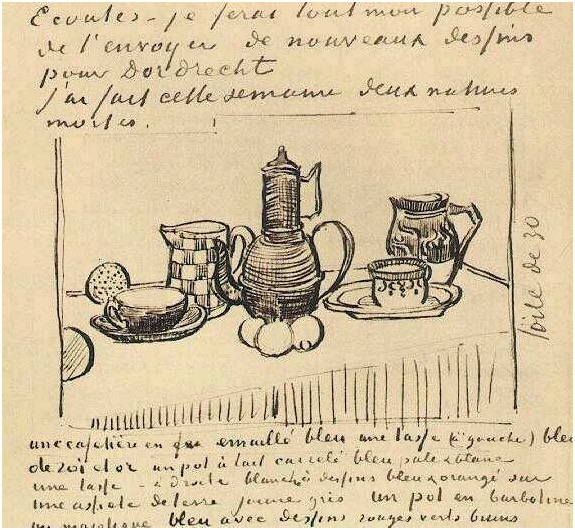 Ecoutes - je ferai tout mon possible
de t'envoyer de nouveaux dessins
pour Dordrecht
j'ai fait cette semaine deux natures
mortes.
toile de 30
une cafetière en fer emaillé bleu une tasse (à gauche) bleu
de roi et or un pot à lait carrelé bleu pale & blanc
une tasse - à droite blanche à dessins bleu & orangé sur
une assiette de terre jaune gris un pot en barbotine
ou majolique bleu avec dessins rouges verts bruns